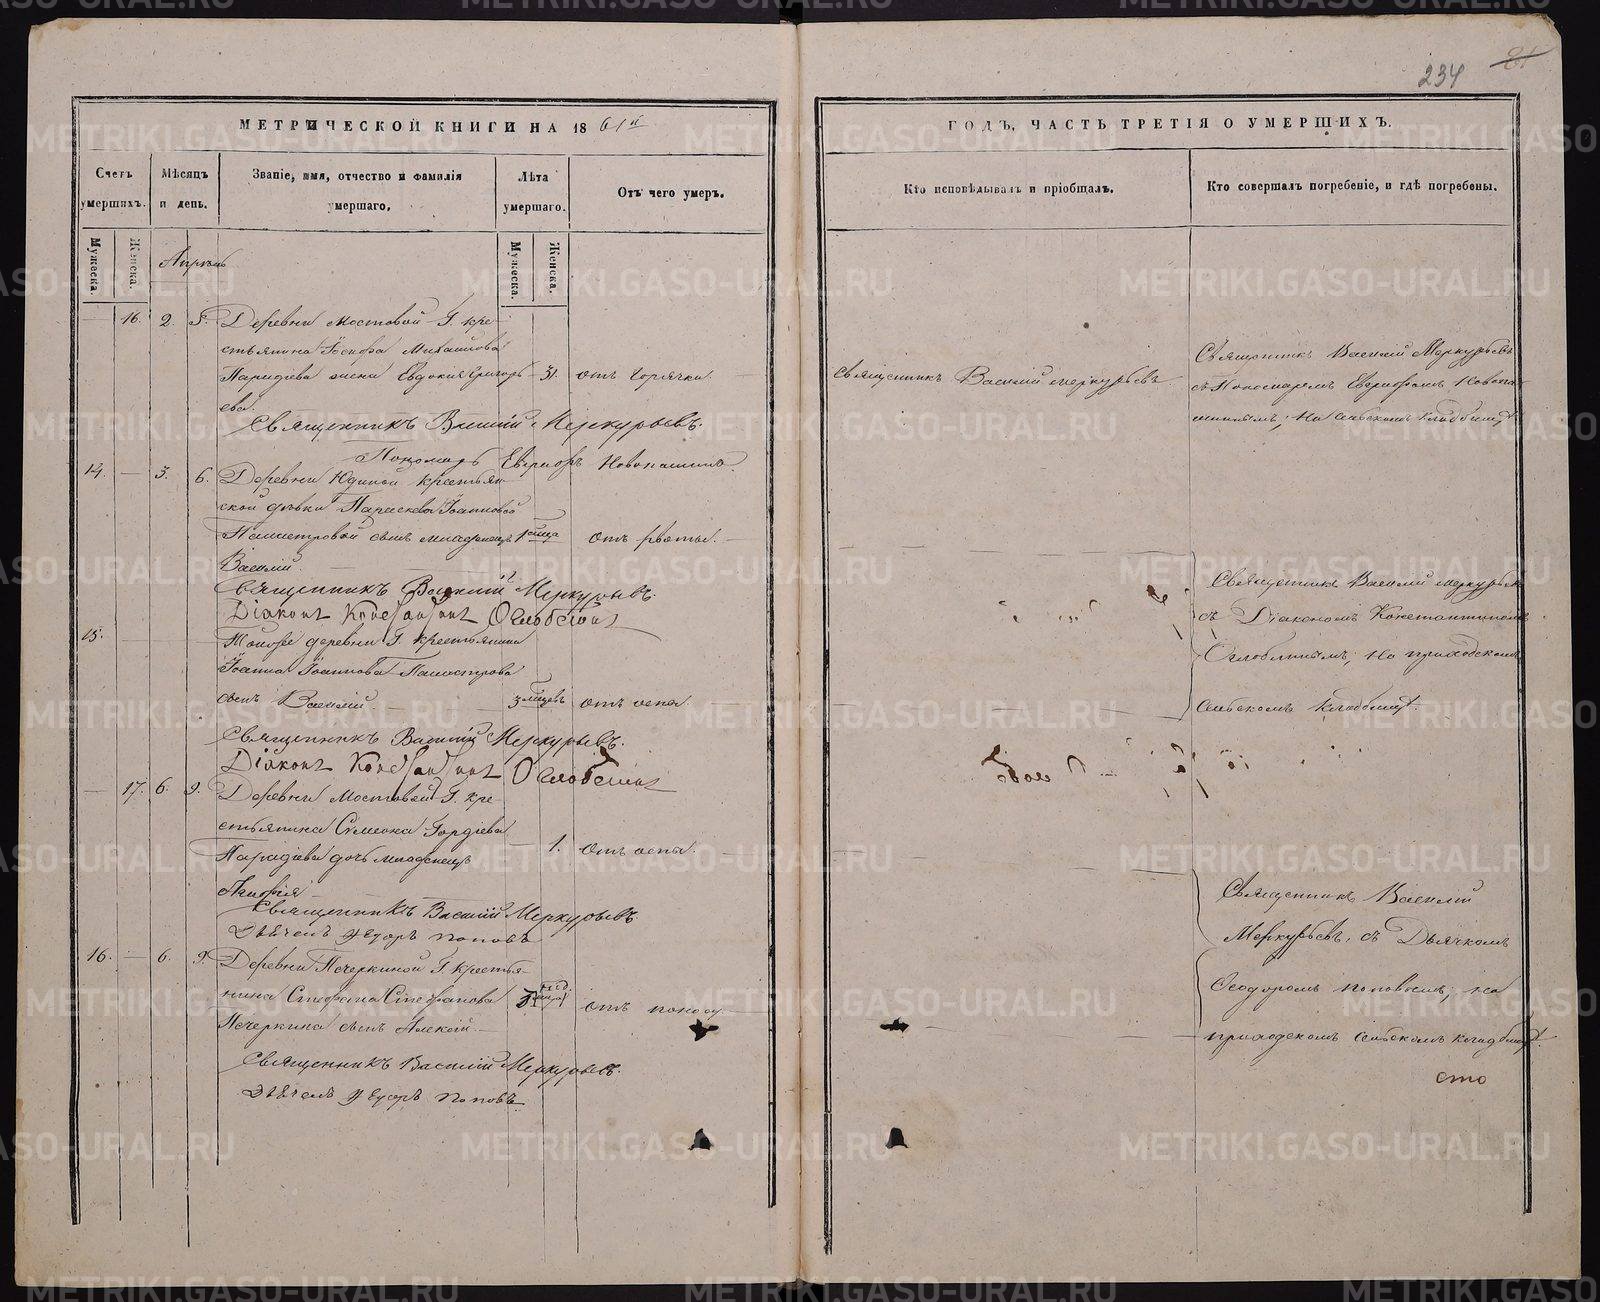 234 81
МЕТРИЧЕСКОЙ КНИГИ НА 1861й
ГОДЪ, ЧАСТЬ ТРЕТІЯ О УМЕРШИХЪ.
Счетъ умершихъ.
Мѣсяцъ и день.
Званіе, имя, отчество и фамилія умершаго.
Лѣта умершаго.
Отъ чего умеръ.
Кто исповѣдывалъ и пріобщалъ.
Кто совершалъ погребеніе, и гдѣ погребены.
Мужеска.
Женска.
Апрѣль
Мужеска.
Женска.
16. 2. 5. Деревни Мостовой Г. кре-
стьянина Іосифа Михайлова
жена Евдокия Григорь- 31. отъ горячки.
ева.
Священникъ Василій Меркурьевъ.
Пономарь Новопашинъ.
Священникъ Василій Меркурьевъ
Священникъ Василій Меркурьевъ
съ Пономаремъ Новопа-
шинымъ, на сельскомъ кладбищѣ
14. 3. 6. Деревни Юдиной крестьян-
ской дѣвки Іоанновой
сынъ младенецъ отъ рвоты.
Василій
Священникъ Василій Меркурьевъ.
Діаконъ Константинъ Оглоблинъ
15. Тойже деревни Г. крестьянина
Іоанна Іоаннова
сынъ Василій 3 мѣсяцевъ отъ оспы.
Священникъ Василій Меркурьевъ.
Діаконъ Константинъ Оглоблинъ
Священникъ Василій Меркурьевъ
съ Діакономъ Константиномъ
Оглоблинымъ, на приходскомъ
сельскомъ кладбищѣ.
17. 6. 9. Деревни Мостовой Г. кре-
стьянина Симеона Гордіева
дочь младенецъ 1. отъ оспы.
Священникъ Василій Меркурьевъ.
Дьячекъ Ѳедоръ Поповъ
16. 6. 9. Деревни Печеркиной Г. крестья-
нина Стефана Стефанова отъ поносу
Печеркина сынъ Алексій.
Священникъ Василій Меркурьевъ.
Дьячекъ Ѳедоръ Поповъ
Священникъ Василій
Меркурьевъ, съ Дьячкомъ
Ѳеодоромъ Поповымъ, на
приходскомъ сельскомъ кладбищѣ.
сто
METRIKI.GASO-URAL.RU